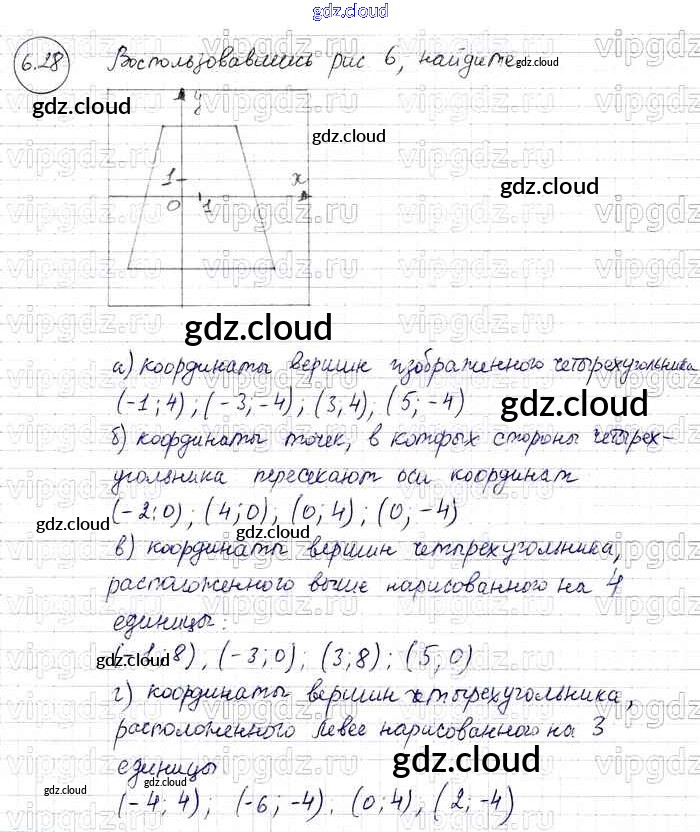 gdz.cloud
6.28 Воспользовавшись рис 6, найдите
gdz.cloud
gdz.cloud
gdz.cloud
gdz.cloud
gdz.cloud
y
1
x
0
1
gdz.cloud
а) координаты вершин изображенного четырехугольника
(-1; 4); (-3; -4); (3, 4), (5; -4)
gdz.cloud
б) координаты точек, в которых стороны четырех-
угольника пересекают оси координат
(-2; 0); (4; 0), (0; 4); (0; -4)
gdz.cloud
gdz.cloud
в) координаты вершин четырехугольника,
расположенного выше нарисованного на 4
единицы:
(-1; 8), (-3; 0); (3; 8); (5; 0)
gdz.cloud
gdz.cloud
г) координаты вершин четырехугольника,
расположенного левее нарисованного на 3
единицы
gdz.cloud
(-4; 4); (-6; -4). (0; 4), (2; -4)
gdz.cloud
gdz.cloud
vipgdz.ru